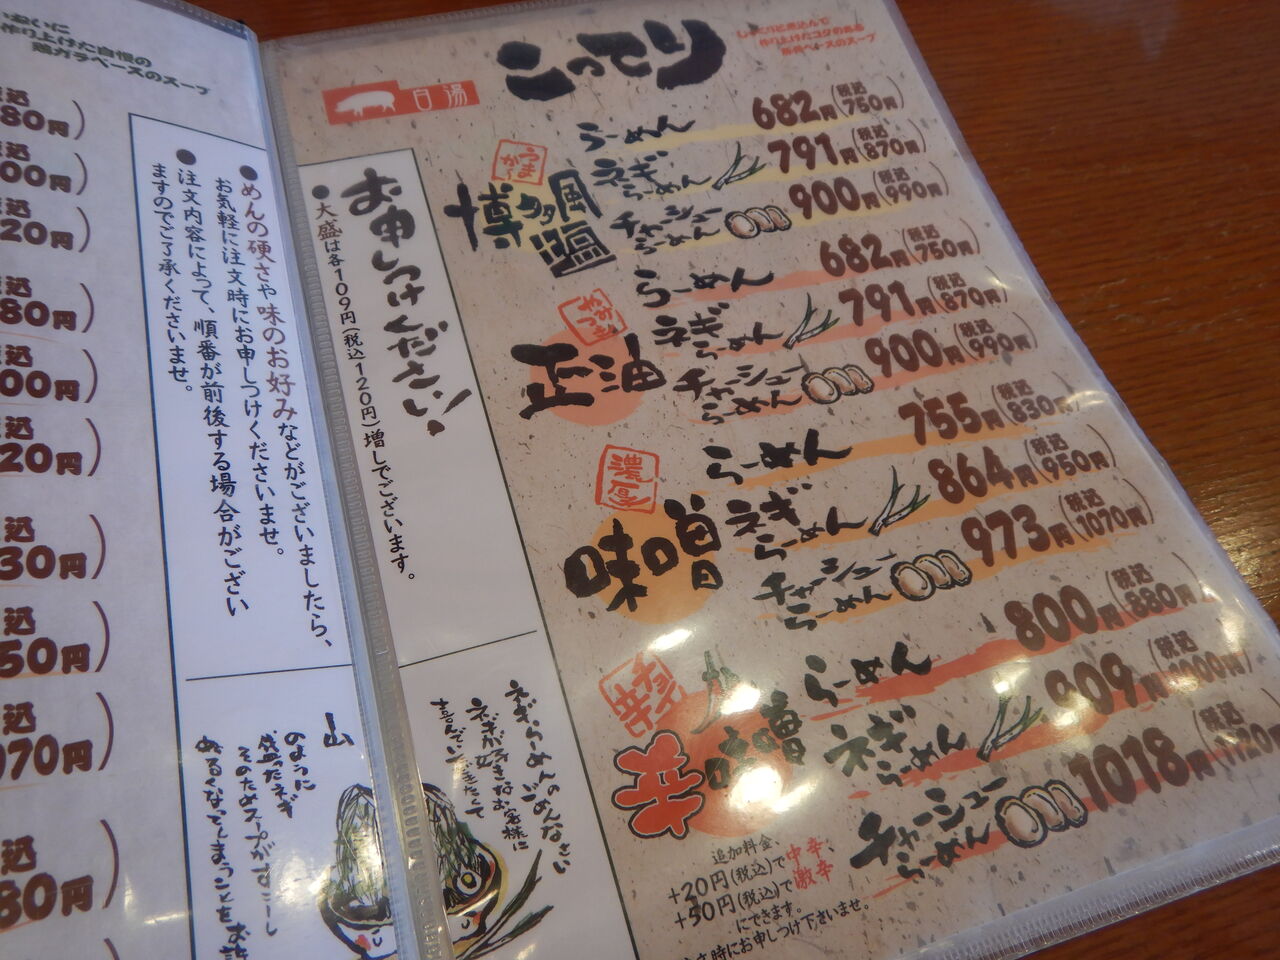 作り上げた自慢の
鶏ガラベースのスープ
80円)
00円)
20円)
80円)
00円)
20円)
30円)
50円)
070円)
80円)
●めんの硬さや味のお好みなどがございましたら、
お気軽に注文時にお申しつけくださいませ。
●注文内容によって、順番が前後する場合がござい
ますのでご了承くださいませ。
山
のように
盛たネギ
そのためスープがすこーし
ぬるくなってしまうことを
お申しつけください!
●大盛は各109円(税込120円)増しでございます。
ねぎらーめんのごめんなさい
ネギが好きなお客様に
喜んでいただきたくて
白湯
こってり
じっくりと煮込んで
作り上げたコクのある
豚骨ベースのスープ
うまかー
博多風塩
らーめん 682円(税込750円)
ネギらーめん 791円(税込870円)
チャーシューらーめん 900円(税込990円)
やみつき
正油
らーめん 682円(税込750円)
ネギらーめん 791円(税込870円)
チャーシューらーめん 900円(税込990円)
濃厚
味噌
らーめん 755円(税込830円)
ネギらーめん 864円(税込950円)
チャーシューらーめん 973円(税込1070円)
辛味噌
らーめん 800円(税込880円)
ネギらーめん 909円(税込1000円)
チャーシューらーめん 1018円(税込1120円
追加料金、
+20円(税込)で中辛、
+50円(税込)で激辛
にできます。
文時にお申しつけ下さいませ。